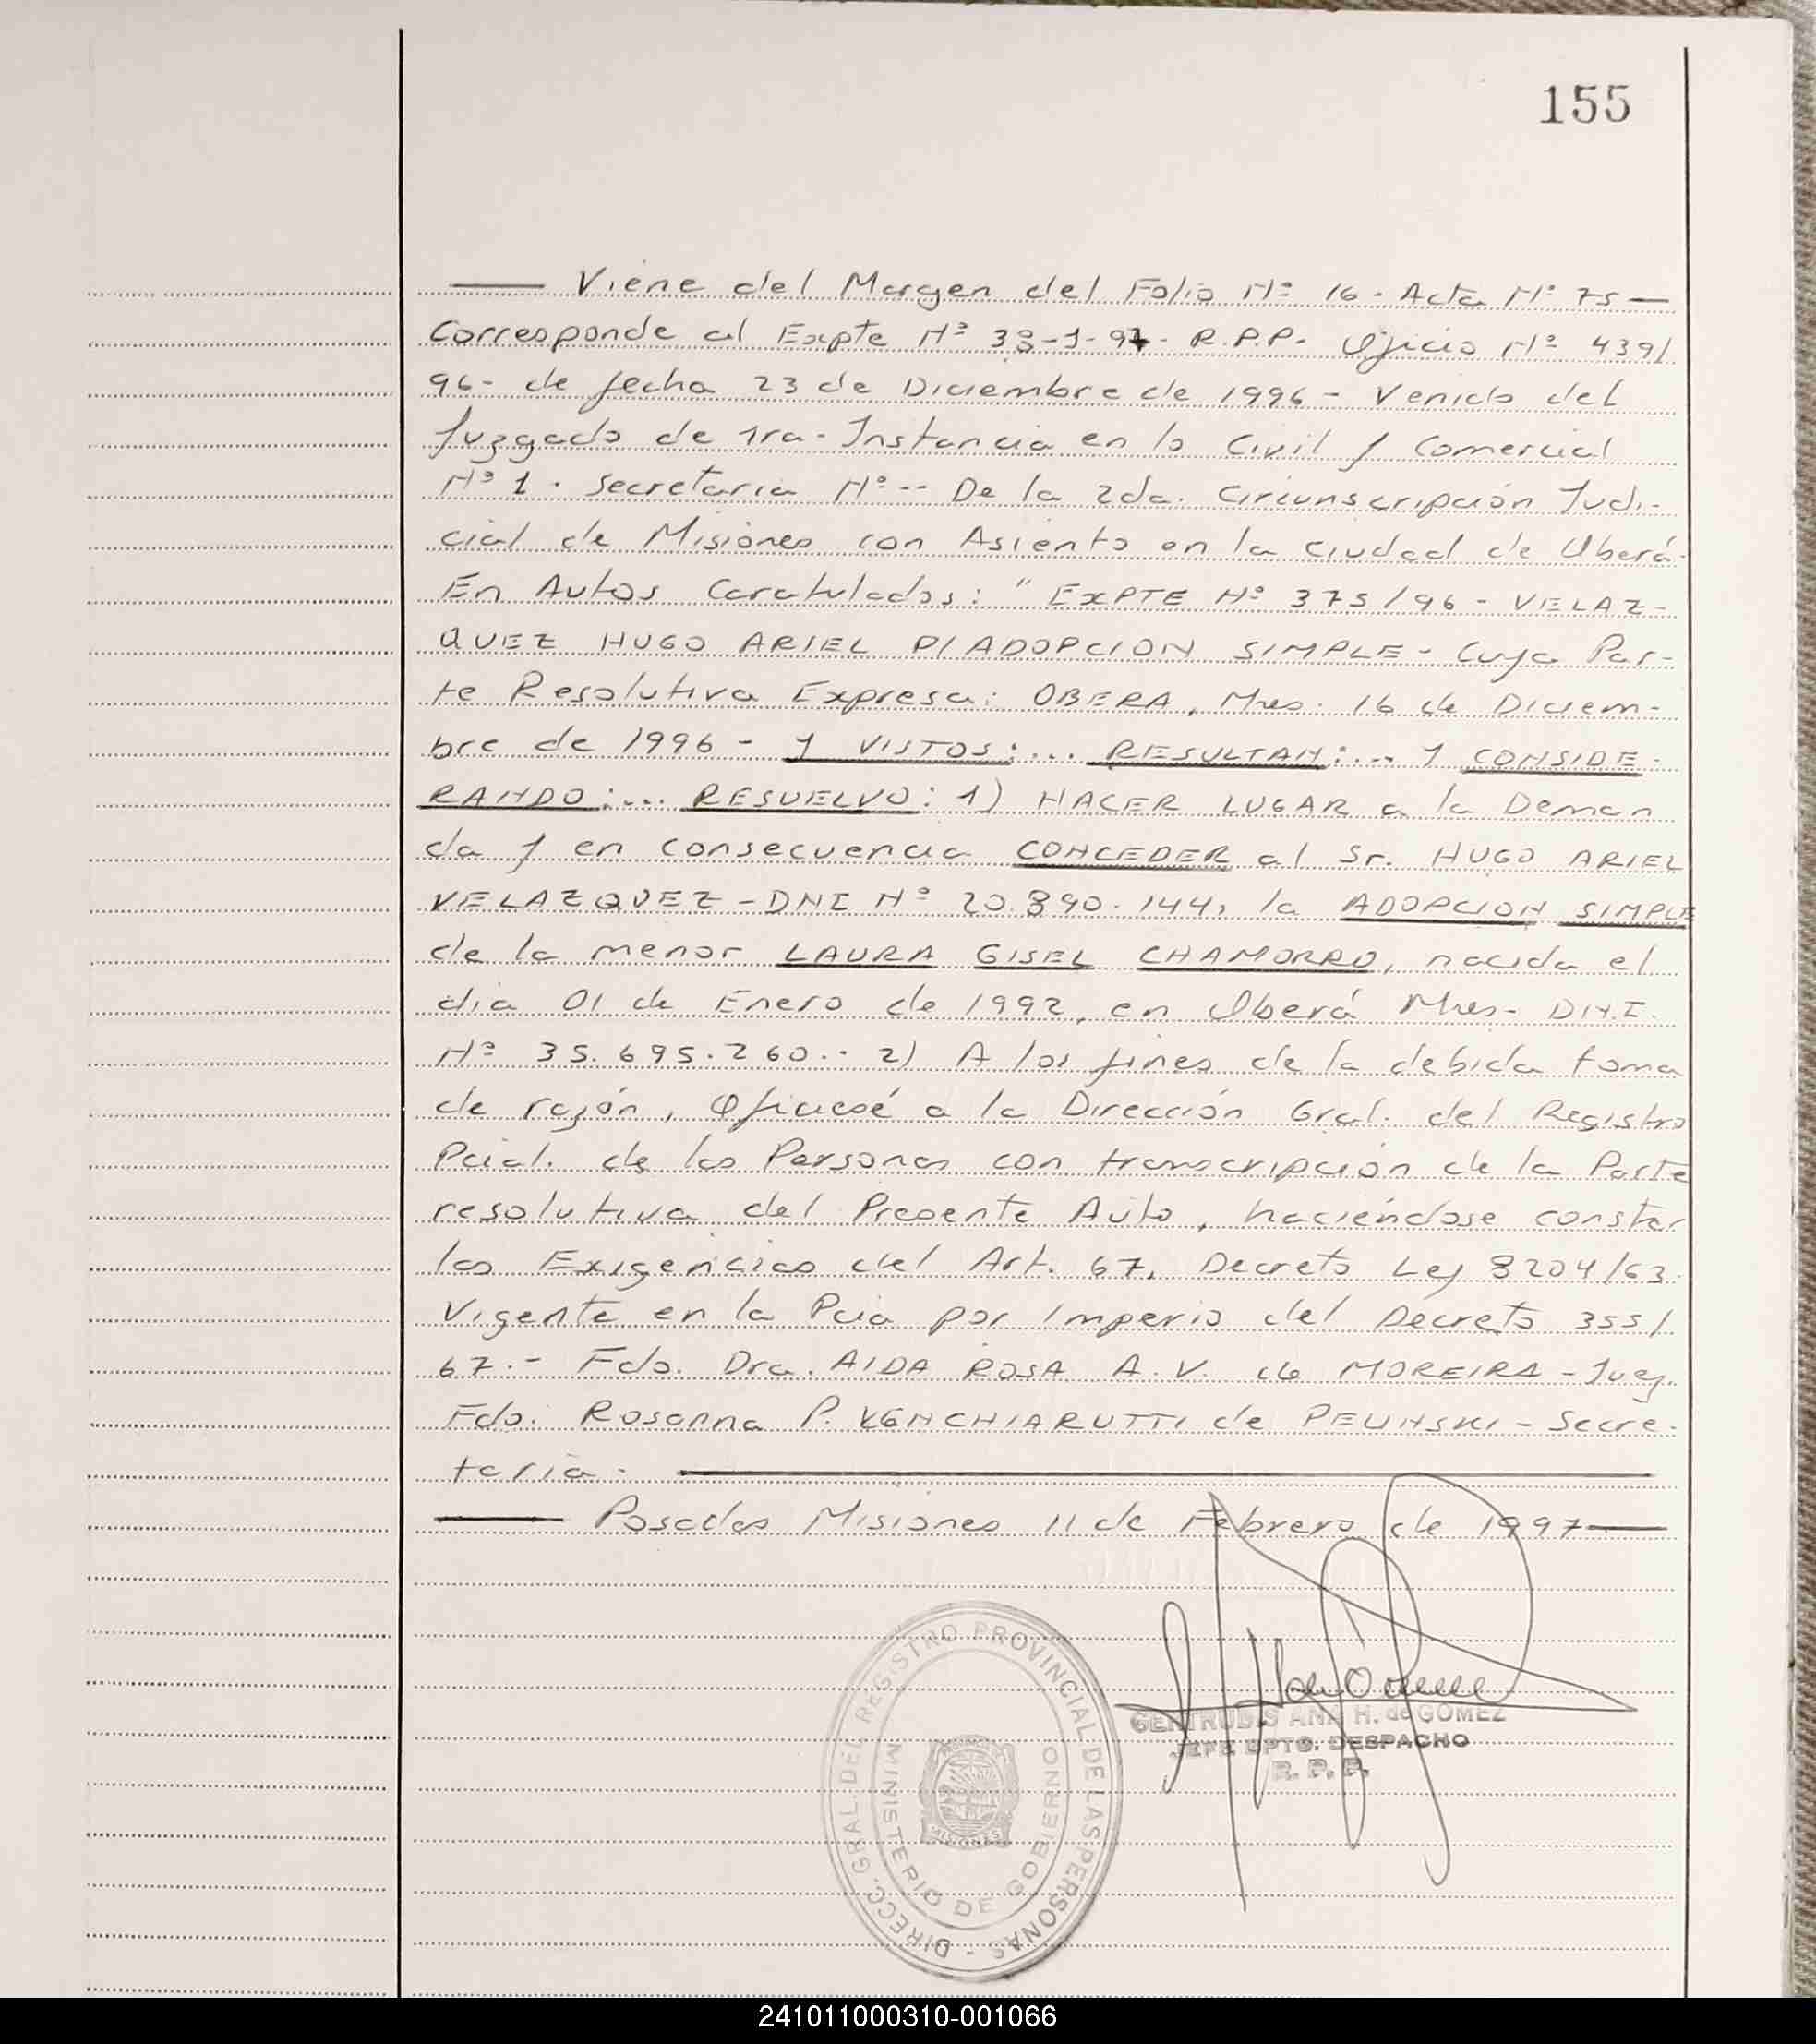 155
Viene del Margen del Folio Nº 16 - Acta Nº 75 —
Corresponde al Expte Nº 38-J-97 - R.P.P. Oficio Nº 439/
96- de fecha 23 de Diciembre de 1996 - Venido del
Juzgado de 1ra. Instancia en lo Civil y Comercial
Nº 1 - Secretaria Nº -- De la 2da. Circunscripción Judi-
cial de Misiones con Asiento en la ciudad de Oberá-
En Autos Caratulados: " EXPTE Nº 375/96 - VELAZ-
QUEZ HUGO ARIEL P/ADOPCION SIMPLE - Cuya Par-
te Resolutiva Expresa: OBERA, Mnes. 16 de Diciem-
bre de 1996 - Y VISTOS:... RESULTAN:... Y CONSIDE-
RANDO:... RESUELVO: 1) HACER LUGAR a la Deman
da y en consecuencia CONCEDER al Sr. HUGO ARIEL
VELAZQUEZ - DNI Nº 20.890.144, la ADOPCION SIMPLE
de la menor LAURA GISEL CHAMORRO, nacida el
dia 01 de Enero de 1992, en Oberá Mnes- D.N.I.
Nº 35.695.260.- 2) A los fines de la debida toma
de razón, Ofíciesé a la Dirección Gral. del Registro
Pcial. de las Personas con transcripción de la Parte
resolutiva del Presente Auto, haciéndose constar
las Exigencias del Art. 67, Decreto Ley 8204/63
Vigente en la Pcia por Imperio del Decreto 355/
67.- Fdo. Dra. AIDA ROSA A. V. de MOREIRA - Juez.
Fdo. Rosanna P. VENCHIARUTTI de PELINSKI - Secre-
taria.
Posadas Misiones 11 de Febrero de 1997 —
GERTRUDIS ANA H. de GOMEZ
JEFE DPTO. DESPACHO
R. P. P.
DIRECC. GRAL. DEL REGISTRO PROVINCIAL DE LAS PERSONAS -
MINISTERIO DE GOBIERNO
MISIONES
241011000310-001066